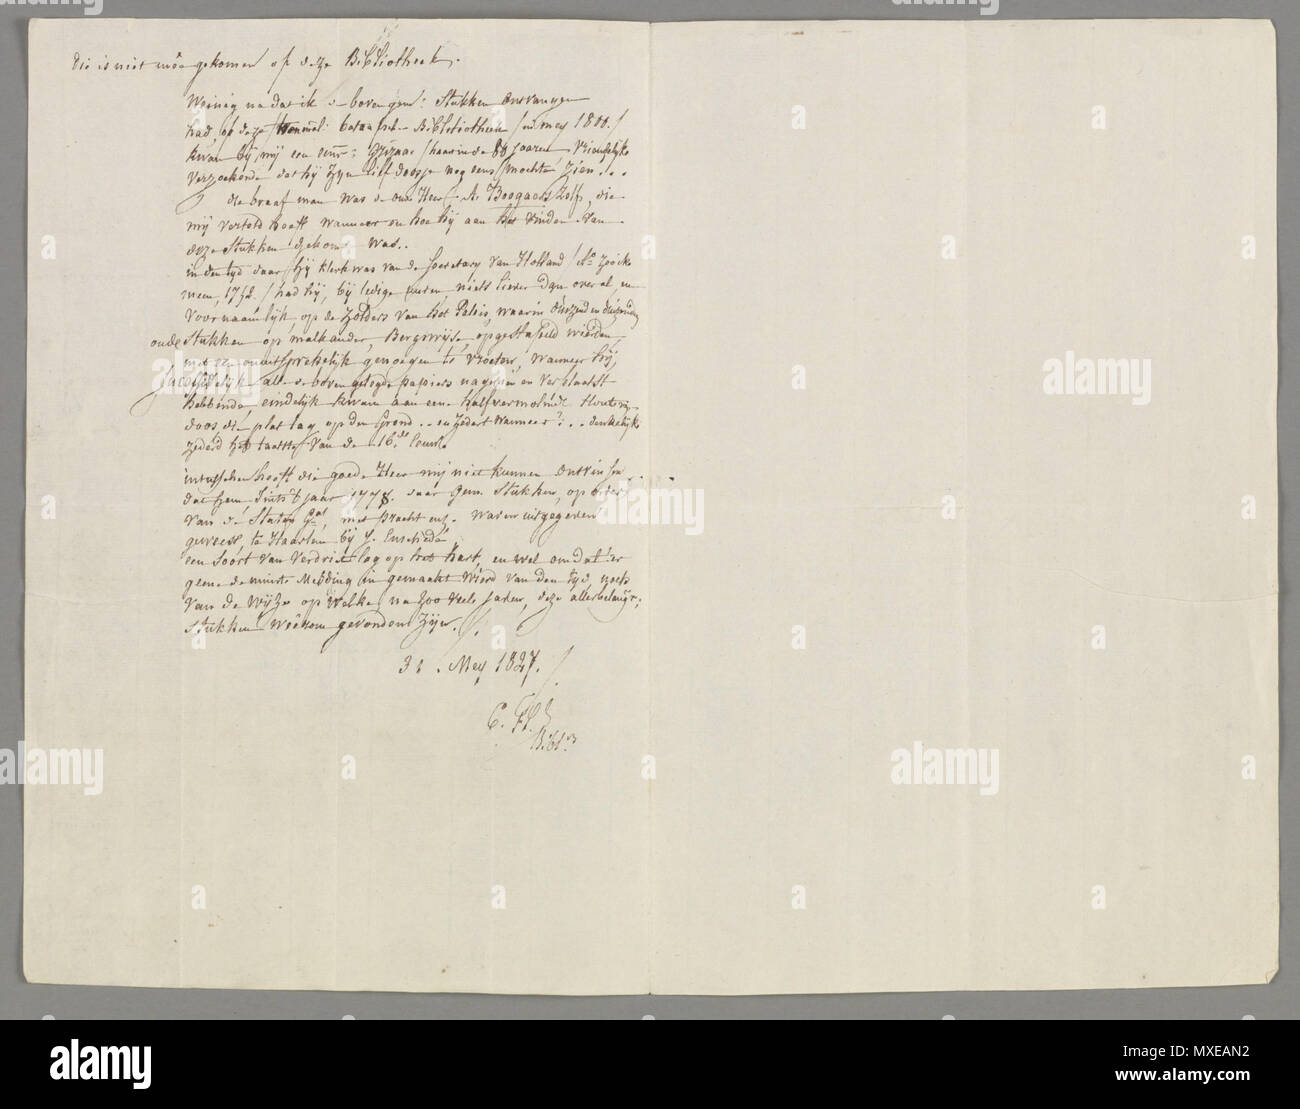 die is niet mêe gekomen op deze Bibliotheek.
Weinig na dat ik de boven gem: Stukken ontvangen
had, op deze Bibliotheek / in mey 1800. /
kwam bij mij een grijzaar / haar in de 80 jaaren vriendelijk
verzoekende dat hij zijn lief doosje nog eens mochte zien...
die braaf man was de oude Heer A. Boogaers Zolf, die
mij verteld heeft wanneer en hoe hij aan het vinden van
deze Stukken gekom: was..
in den tyd daar hij klerk was van de Secretary van Holland / Ao
meen, 1752. / had hij, bij ledige uuren niets liever dan over al, en
voornaamlijk, op de Zolders van het Paleis, waarin duizend en duizenden
oude Stukken op malkander, Bergswijse opgestapeld wierden,
met een onuitsprekelijk genoegen te vroeten, wanneer hij,
alle de boven gelegde papiers nagezien en verplaatst
hebbende, eindelijk kwam aan eene half vermolmde Houten
doos die plat lag op den Grond .. en zedert wanneer? ... denkelijk
zederd het laatste van de 16.de Eeuw.
intusschen heeft die goede Heer mij niet kunnen ontveinsen
dat hem sints 't jaar 1778. daar gem. Stukken, op order
van de Staten Gl., met pracht enz. waren uitgegeven
geweest, te Haarlem bij J. Enschedé
een soort van verdriet lag op het hart, en wel om dat 'er
geene de minste Melding in gemaakt wierd van den tyd, noch
van de wijze op welke, na zoo veele jaren, deze allerbelangr:
Stukken weêrom gevonden zijn. /.
31. Mey 1827. /
C. Fl.
Bibl.
a
alamy
Image ID: MXEAN2
www.alamy.com